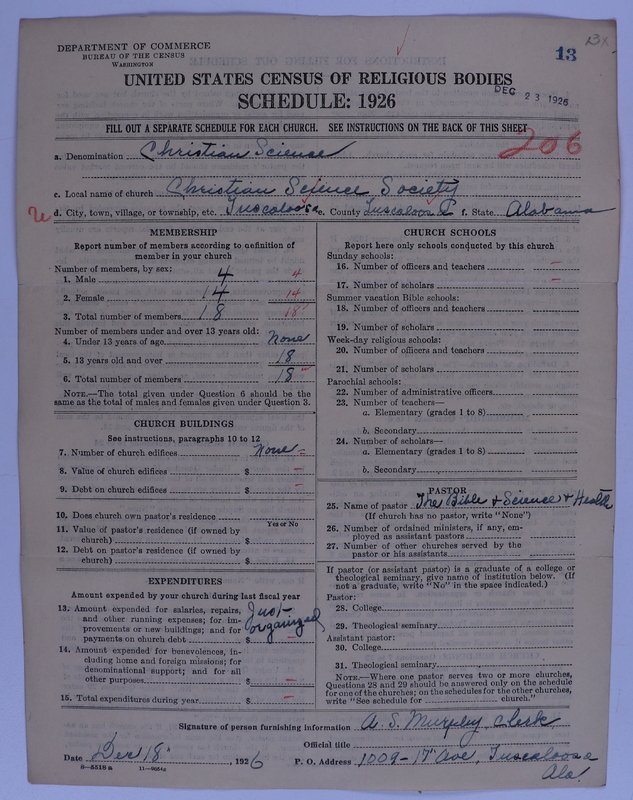 DEPARTMENT OF COMMERCE
BUREAU OF THE CENSUS
WASHINGTON
13
UNITED STATES CENSUS OF RELIGIOUS BODIES
SCHEDULE: 1926
DEC 23 1926
FILL OUT A SEPARATE SCHEDULE FOR EACH CHURCH. SEE INSTRUCTIONS ON THE BACK OF THIS SHEET
206
a. Denomination Christian Science
c. Local name of church Christian Science Society
d. City, town, village, or township, etc. Tuscaloosa e. County Tuscaloosa f. State Alabama
MEMBERSHIP
Report number of members according to definition of
member in your church
Number of members, by sex:
1. Male 4 4
2. Female 14 14
3. Total number of members 18 18
Number of members under and over 13 years old:
4. Under 13 years of age None
5. 13 years old and over 18
6. Total number of members 18
NOTE.—The total given under Question 6 should be
same as the total of males and females given under Question 3.
CHURCH BUILDINGS
See instructions, paragraphs 10 to 12
7. Number of church edifices None
8. Value of church edifices $ —
9. Debt on church edifices $ —
10. Does church own pastor's residence
Yes or No
11. Value of pastor's residence (if owned by
church) $
12. Debt on pastor's residence (if owned by
church) $
EXPENDITURES
Amount expended by your church during last fiscal year
13. Amount expended for salaries, repairs, Just
and other running expenses; for im- organized
provements or new buildings; and for
payments on church debt $ —
14. Amount expended for benevolences, in-
cluding home and foreign missions; for
denominational support; and for all
other purposes $ —
15. Total expenditures during year $ —
CHURCH SCHOOLS
Report here only schools conducted by this church
Sunday schools:
16. Number of officers and teachers —
17. Number of scholars —
Summer vacation Bible schools:
18. Number of officers and teachers
19. Number of scholars
Week-day religious schools:
20. Number of officers and teachers
21. Number of scholars
Parochial schools:
22. Number of administrative officers
23. Number of teachers—
a. Elementary (grades 1 to 8)
b. Secondary
24. Number of scholars—
a. Elementary (grades 1 to 8)
b. Secondary
PASTOR
25. Name of pastor The Bible & Science & Health
(If church has no pastor, write "None")
26. Number of ordained ministers, if any, em-
ployed as assistant pastors
27. Number of other churches served by the
pastor or his assistants
If pastor (or assistant pastor) is a graduate of a college or
theological seminary, give name of institution below. (If
not a graduate, write "No" in the space indicated.)
Pastor:
28. College
29. Theological seminary
Assistant pastor:
30. College
31. Theological seminary
NOTE.—Where one pastor serves two or more churches,
Questions 28 and 29 should be answered only on the schedule
for one of the churches; on the schedules for the other churches,
write "See schedule for church."
Signature of person furnishing information A. S. Murpley Clerk
Official title
Date Dec 18, 1926 P. O. Address 1009–17th Ave, Tuscaloosa
Ala.
8—5518a 11—9054